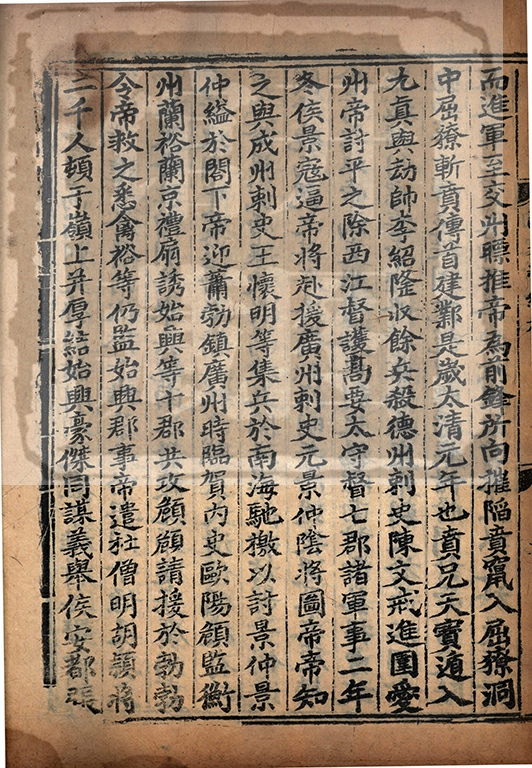 而進軍至交州㬓推帝為前鋒所向摧陷賁竄入屈獠洞
中屈獠斬賁傳首建鄴是歲太清元年也賁兄天寶遁入
九真與劫帥李紹隆收餘兵殺德州刺史陳文戒進圍愛
州帝討平之除西江督護髙要太守督七郡諸軍事二年
冬侯景寇逼帝將赴援廣州刺史元景仲陰將圖帝帝知
之與成州刺史王懷明等集兵於南海馳檄以討景仲景
仲縊於閤下帝迎蕭勃鎮廣州時臨賀內史歐陽頠監衡
州蘭裕蘭京禮扇誘始興等十郡共攻頠頠請援於勃勃
令帝救之悉禽裕等仍監始興郡事帝遣社僧明胡頴將
二千人頓于嶺上并厚結始興豪傑同謀義舉侯安都張